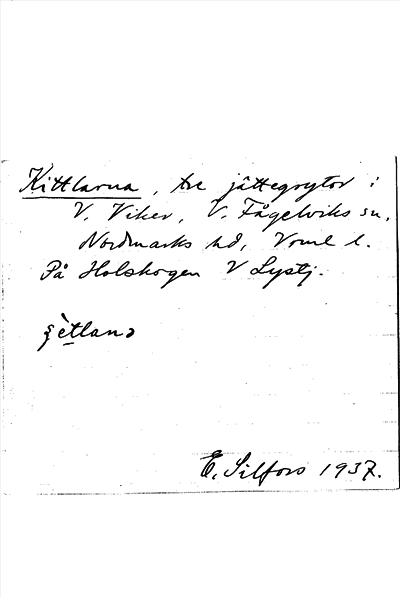 Kittlarna, tre jättegrytor i
V. Viker, V. Fågelviks sn,
Nordmarks hd, Vrml l.
På Holskogen V Lystj.
ʂètlanə
E. Silfors 1937.